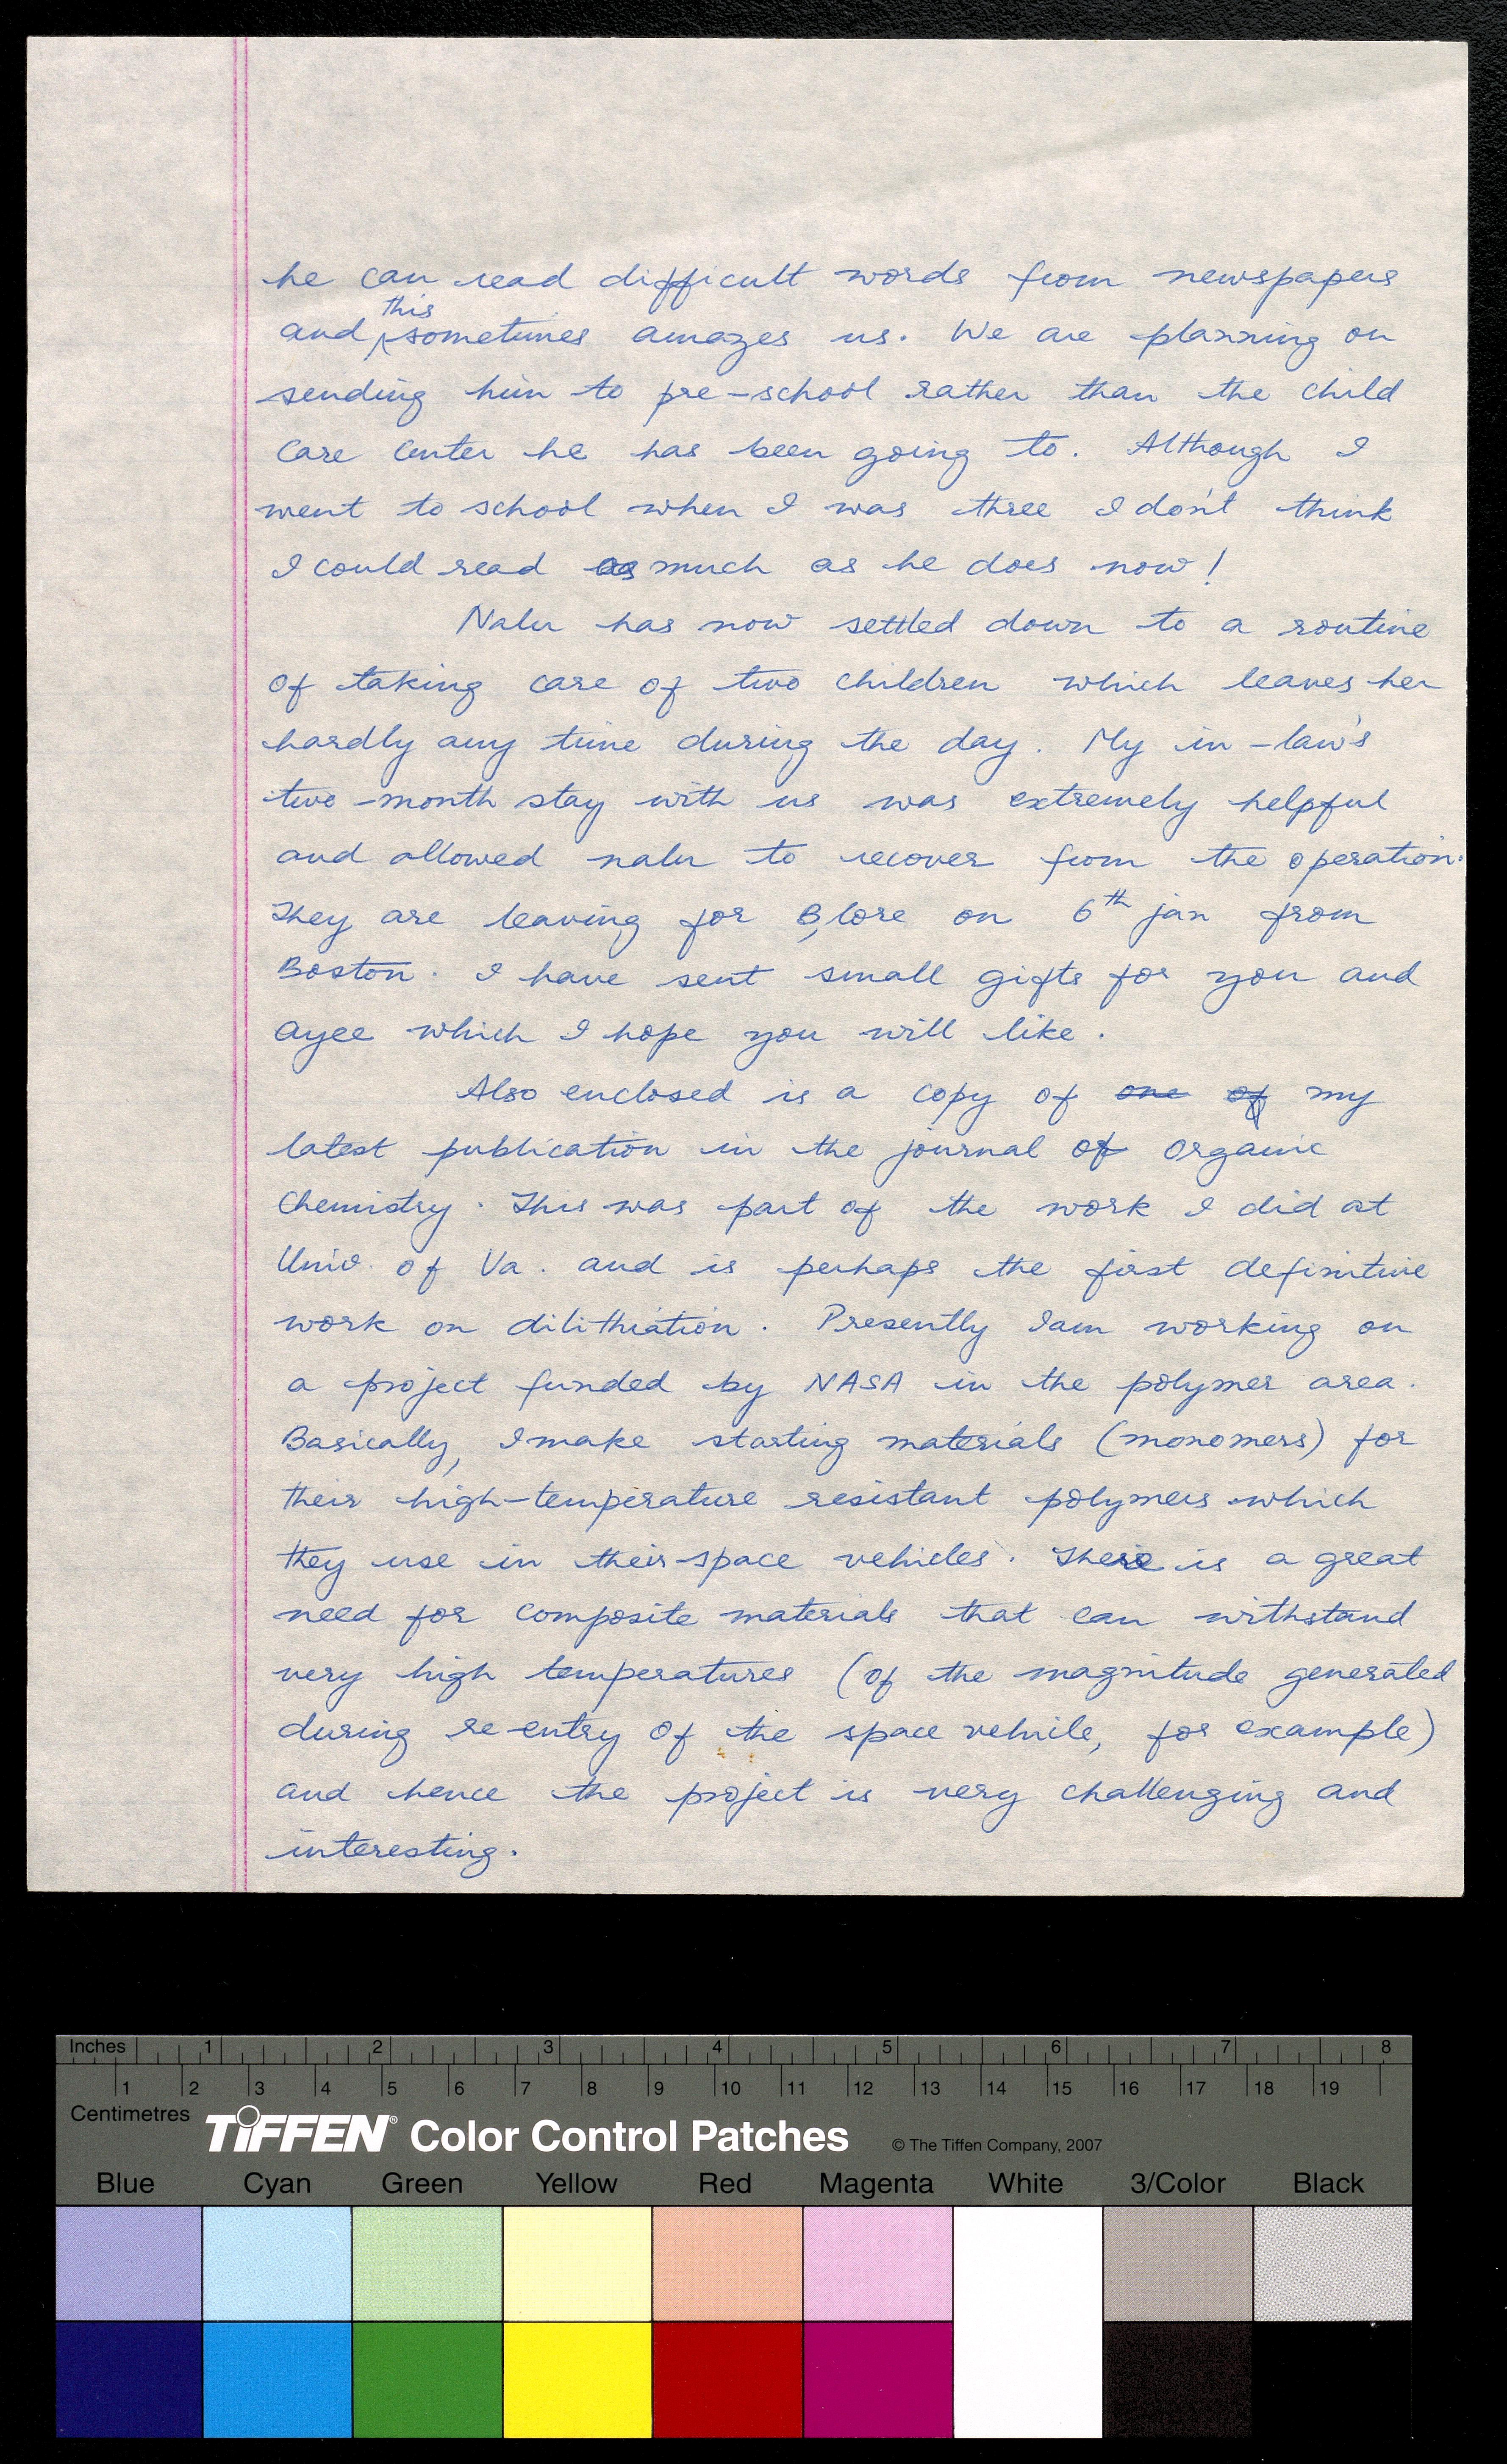 he can read difficult words from newspapers
this
and sometimes amazes us. We are planning on
sending him to pre-school rather than the child
care center he has been going to. Although I
went to school when I was three I don't think
I could read as much as he does now!
Nalu has now settled down to a routine
of taking care of two children which leaves her
hardly any time during the day. My in-law's
two-month stay with us was extremely helpful
and allowed nalu to recover from the operation.
They are leaving for B,lore on 6th jan from
Boston. I have sent small gifts for you and
ayee which I hope you will like.
Also enclosed is a copy of one of my
latest publication in the journal of organic
chemistry. This was part of the work I did at
Univ. of Va. and is perhaps the first definitive
work on dilithiation. Presently I am working on
a project funded by NASA in the polymer area.
Basically, I make starting materials (monomers) for
their high-temperature resistant polymers which
they use in their space vehicles. There is a great
need for composite materials that can withstand
very high temperatures (of the magnitude generated
during re-entry of the space vehicle, for example)
and hence the project is very challenging and
interesting.
Inches 1 2 3 4 5 6 7 8
1 2 3 4 5 6 7 8 9 10 11 12 13 14 15 16 17 18 19
Centimetres
TIFFEN® Color Control Patches © The Tiffen Company, 2007
Blue Cyan Green Yellow Red Magenta White 3/Color Black